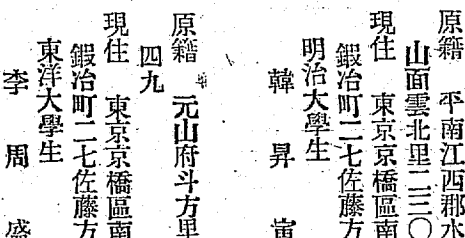 原籍 平南江西郡水
山面雲北里二三〇
現住 東京京橋區南
鍛冶町二七佐藤方
明治大學生
韓昇寅
原籍 元山府斗方里
四九
現住 東京京橋區南
鍛冶町二七佐藤方
東洋大學生
李周盛